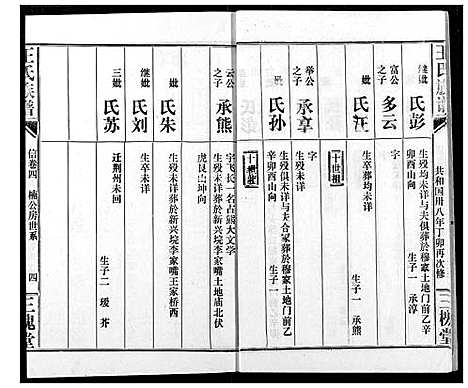 王氏族譜
共和国卅八年丁卯再次修
三槐堂
继妣
氏彭
生殁未详与夫俱葬於穆家土地门前乙辛
卯酉山向
生子一 承淳
富公之子
多云
字
妣
氏汪
生卒葬均未详
生子一 承熊
十世祖
举公之子
承享
字
妣
氏孙
生殁俱未详与夫合冢葬於穆家土地门前乙辛
卯酉山向
生子一
云公之子
承熊
字飞长一名占熊大文学
生殁未详葬於新兴垸李家嘴土地庙北伏
虎艮山坤向
妣
氏朱
生殁未详葬於新兴垸李家嘴王家桥西
继妣
氏刘
生卒未详
三妣
氏苏
迁荆州未回
生子二 瑗 芥
王氏族譜
信卷四 楠公房世系
四
三槐堂